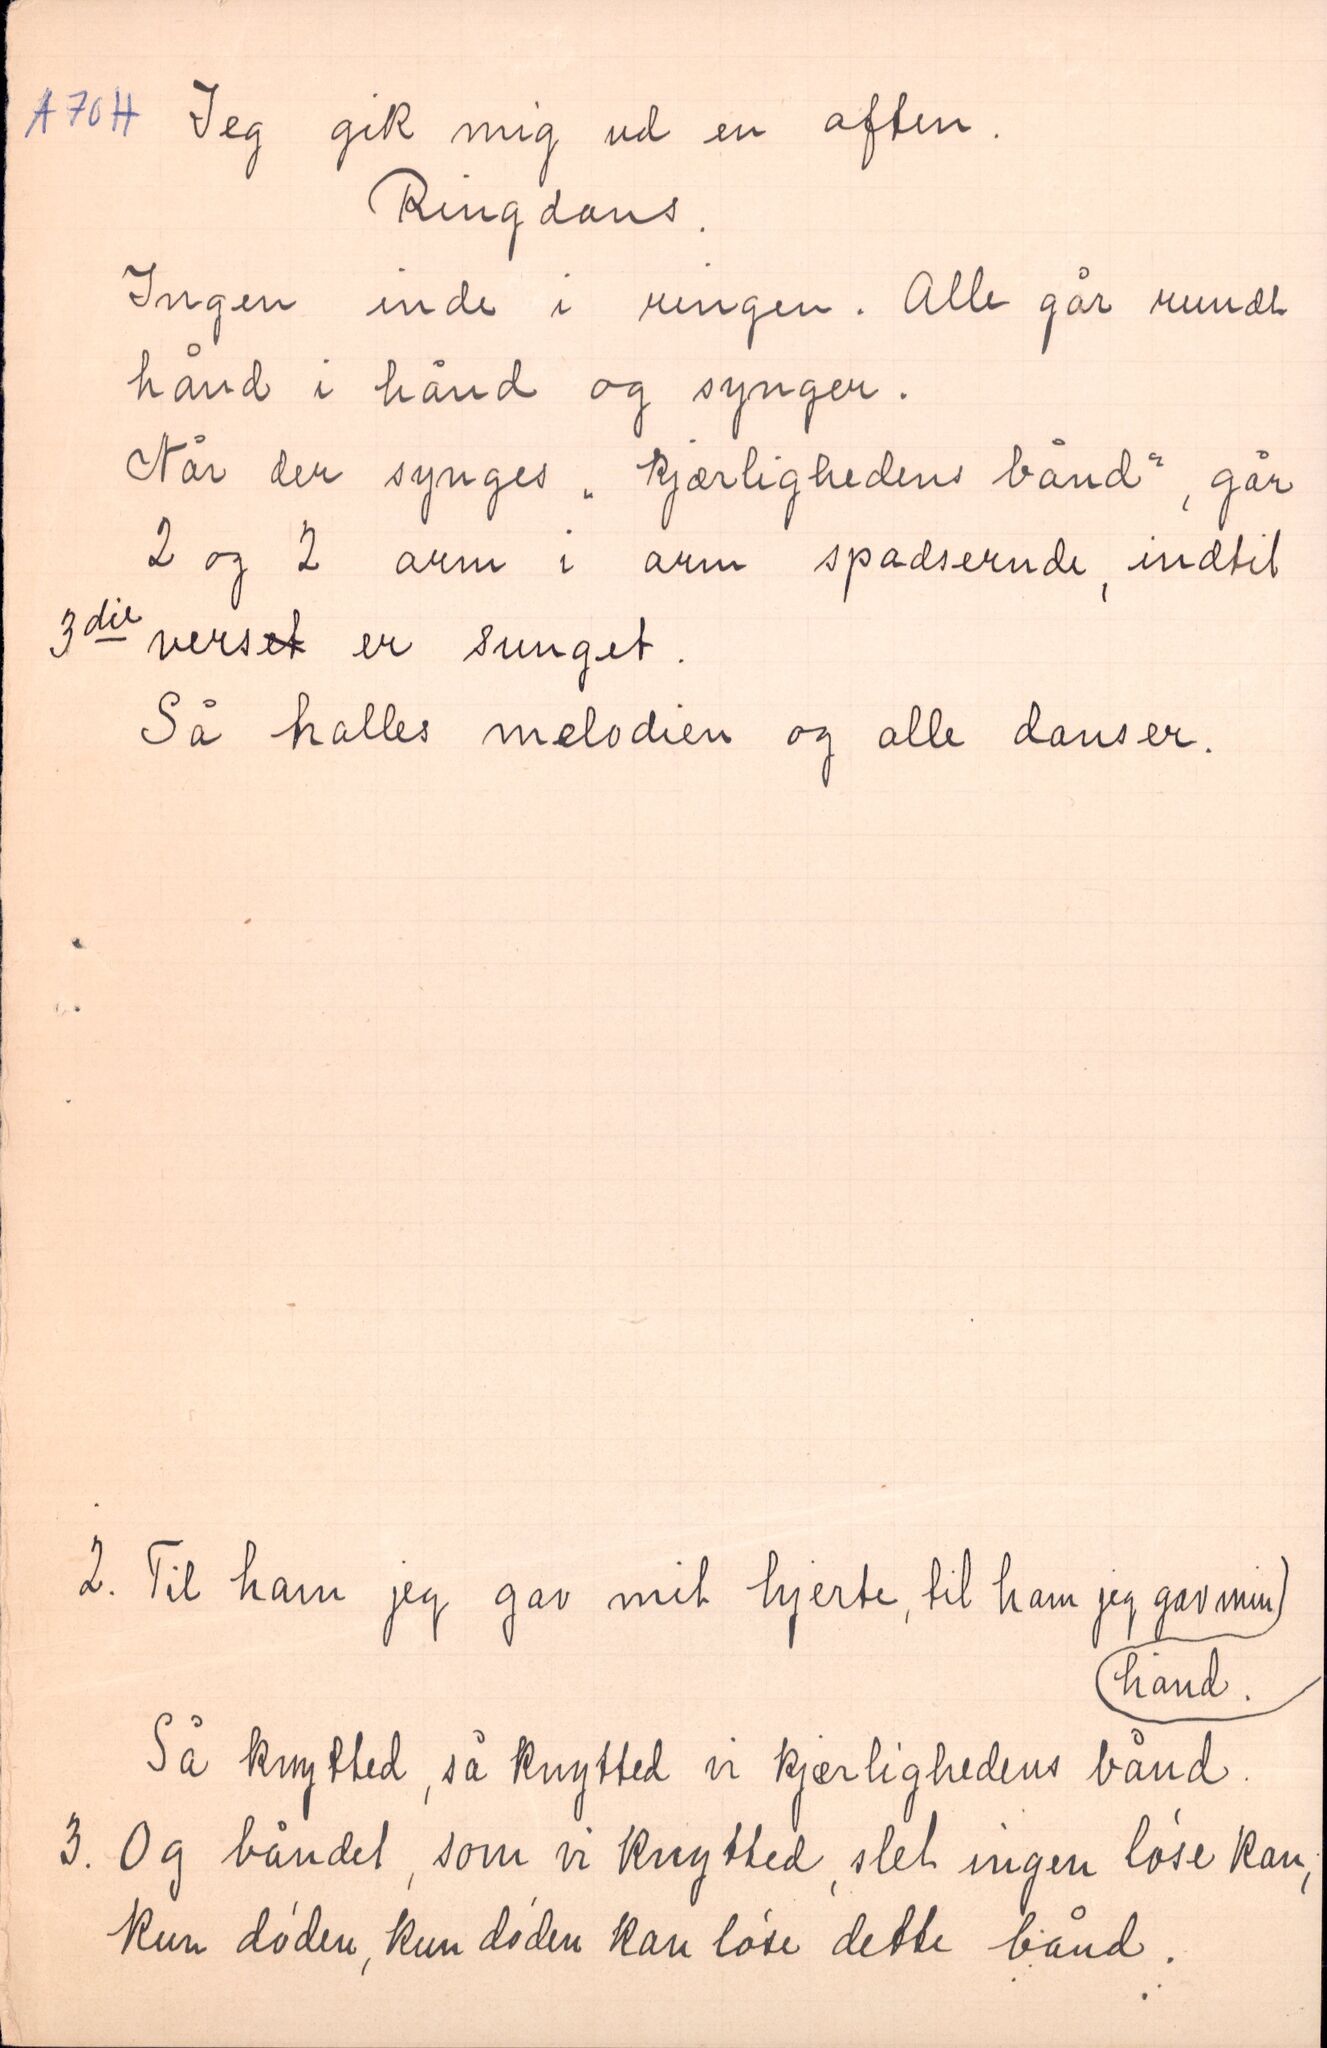 A 70 H Jeg gik mig ud en aften.
Ringdans.
Ingen inde i ringen. Alle går rundt
hånd i hånd og synger.
Når der synges „kjærlighedens bånd“, går
2 og 2 arm i arm spadsernde, indtil
3die verset er sunget.
Så halles melodien og alle danser.
2. Til ham jeg gav mit hjerte, til ham jeg gav min
hånd.
Så knytted, så knytted vi kjærlighedens bånd.
3. Og båndet, som vi knytted, slet ingen löse kan,
kun döden, kun döden kan löse dette bånd.